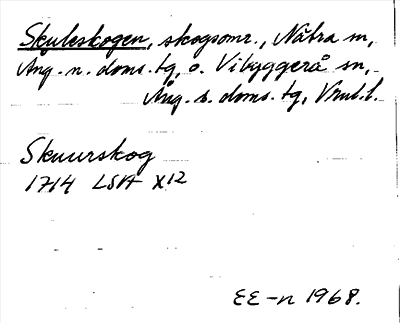 Skuleskogen, skogsomr., Nätra sn,
Ång. n. doms. tg, o. Vibyggerå sn,
Ång. s. doms. tg, Vnrl. l.
Skuurskog
1714 LSA X12
EE-n 1968.